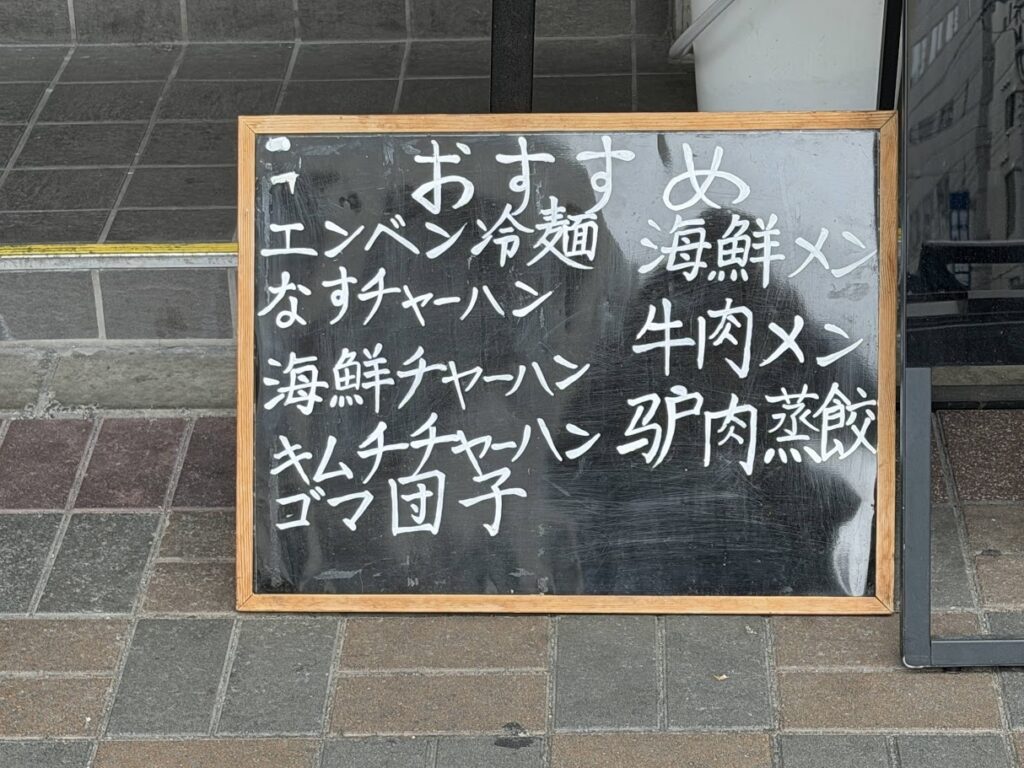 おすすめ
エンベン冷麺
なすチャーハン
海鮮チャーハン
キムチチャーハン
ゴマ団子
海鮮メン
牛肉メン
驴肉蒸餃